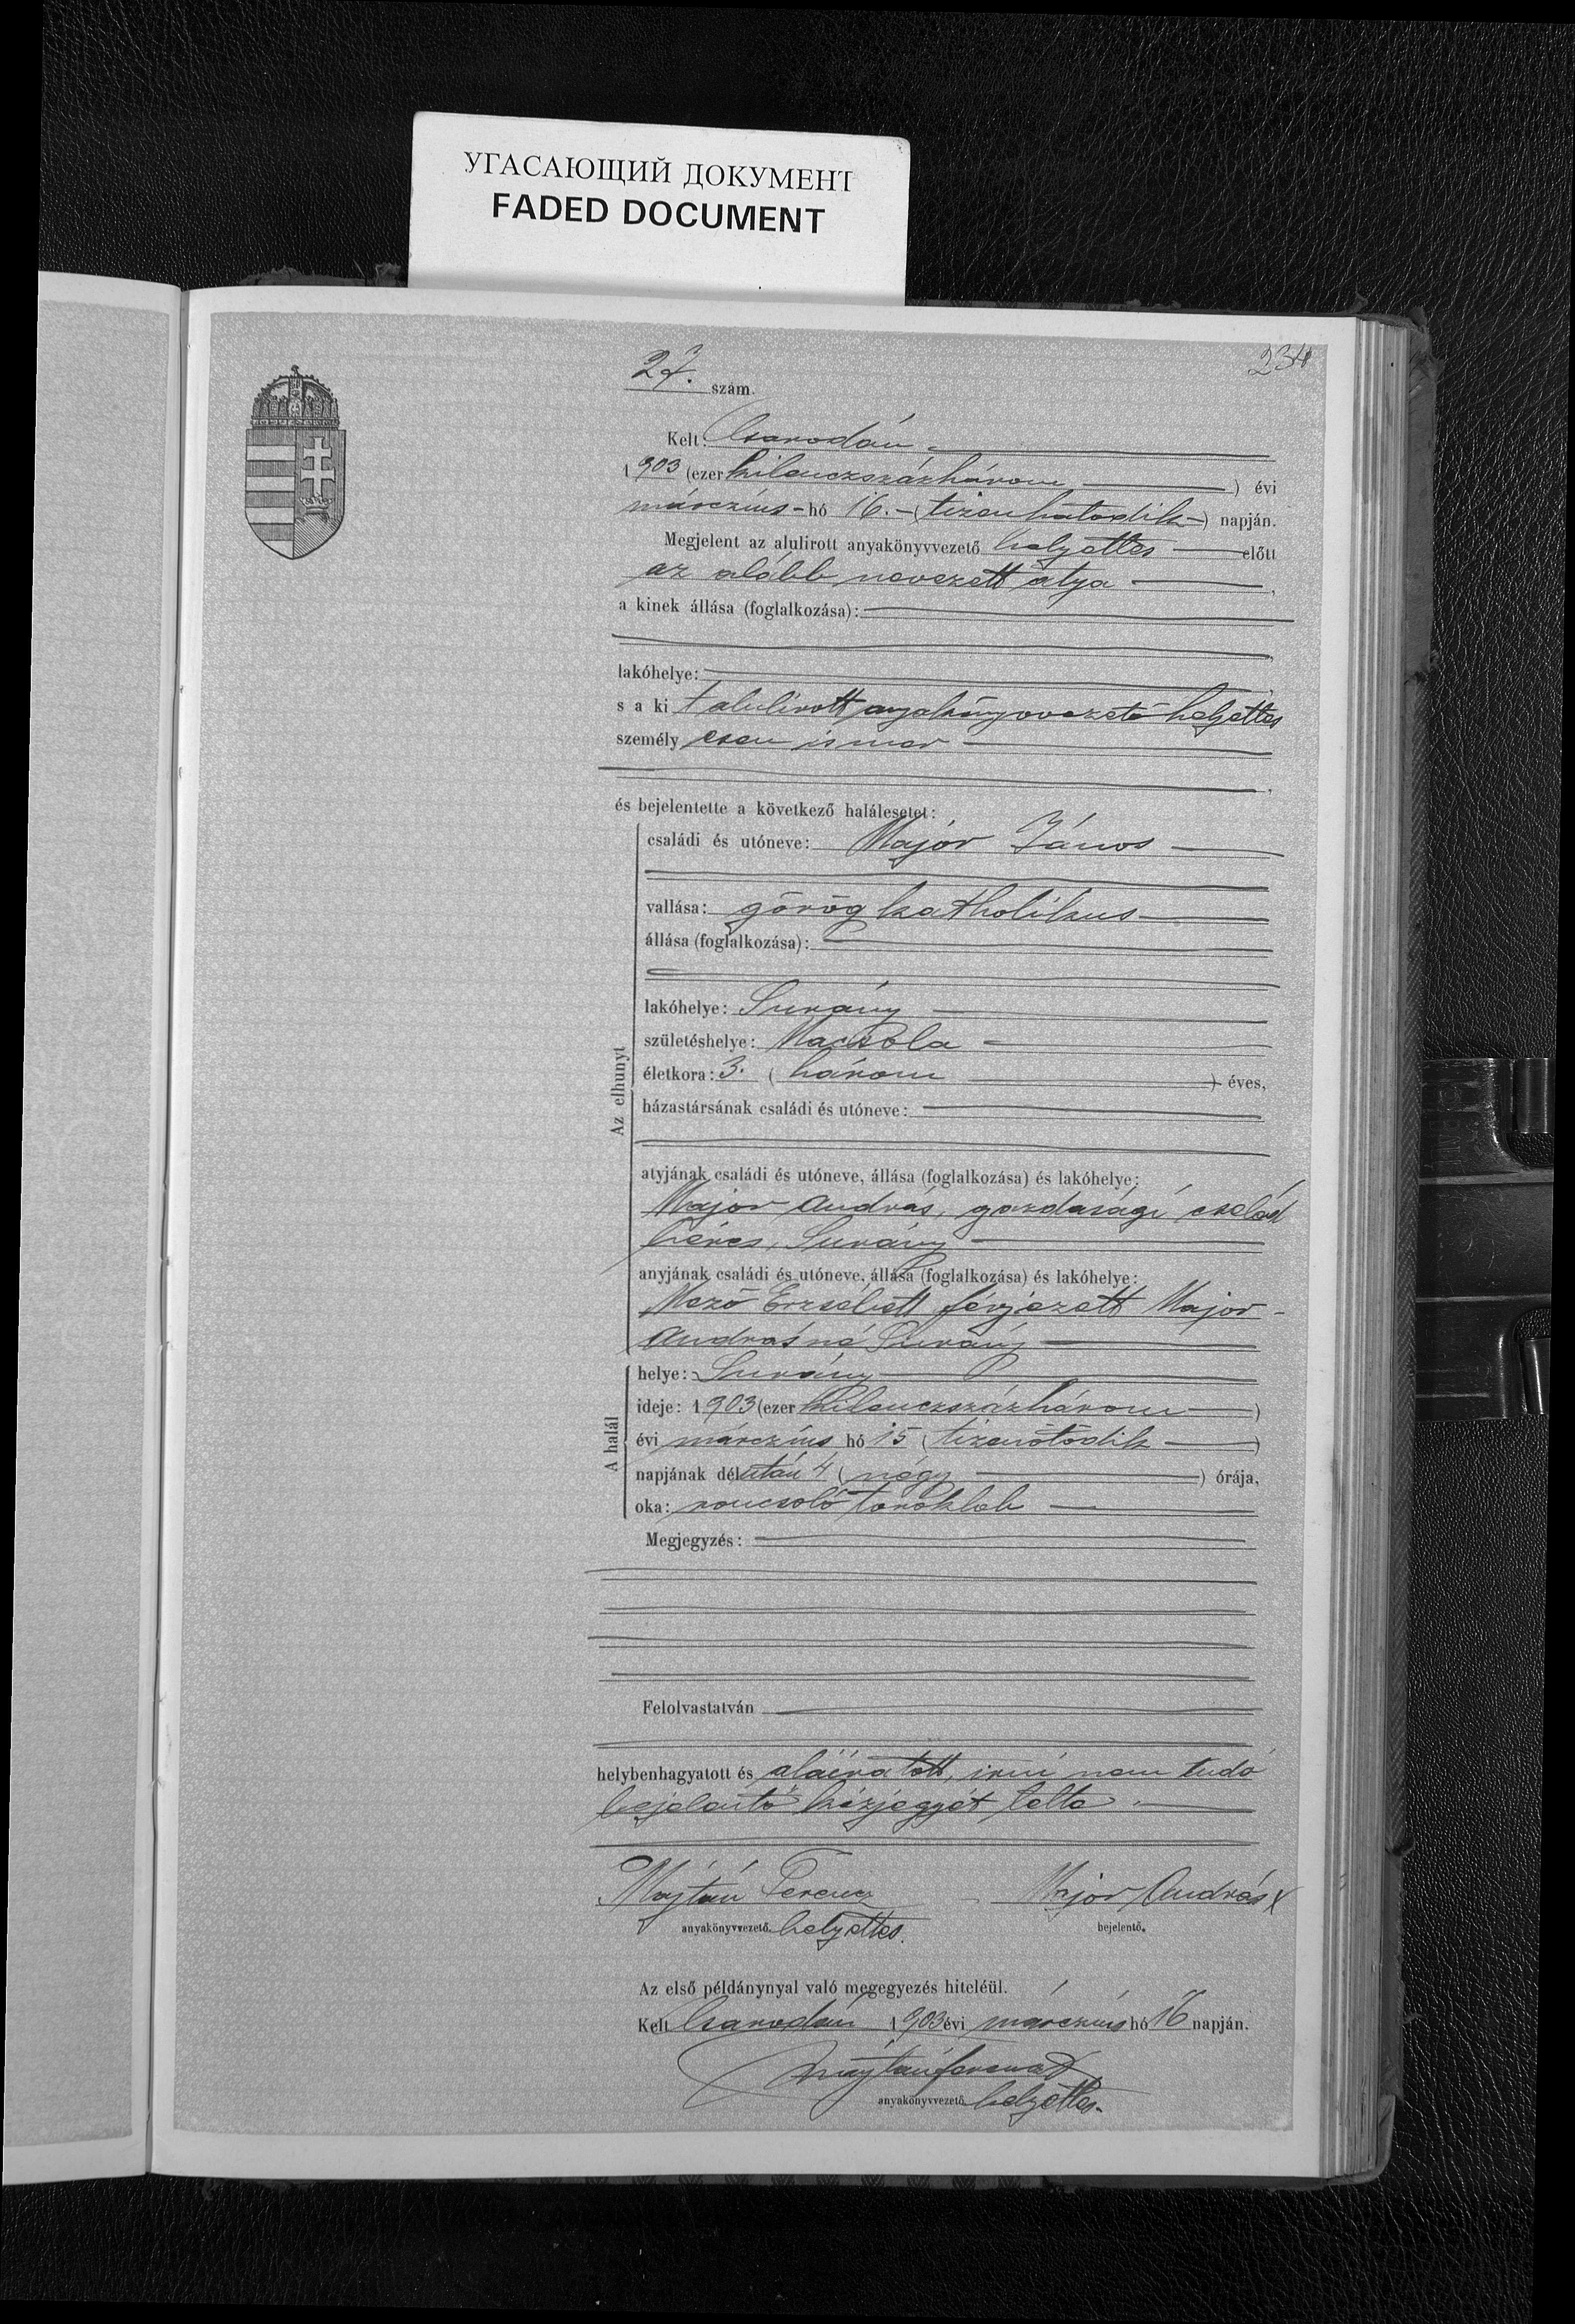 УГАСАЮЩИЙ ДОКУМЕНТ
FADED DOCUMENT
234
27. szám.
Kelt: Csarodán
1903 (ezer kilenczszázhárom) évi
márczius - hó 16. - (tizenhatodik -) napján.
Megjelent az alulirott anyakönyvvezető helyettes előtt
az alább nevezett atya,
a kinek állása (foglalkozása):
lakóhelye:
s a ki t alulírott anyakönyvvezető helyettes
személy esen ismer
és bejelentette a következő halálesetet:
Az elhunyt
családi és utóneve: Major János
vallása: görög katholikus
állása (foglalkozása):
lakóhelye: Surány
születéshelye: Macsola
életkora: 3. (három) éves,
házastársának családi és utóneve:
atyjának családi és utóneve, állása (foglalkozása) és lakóhelye:
Major András, gazdasági cseléd
béres, Surány
anyjának családi és utóneve, állása (foglalkozása) és lakóhelye:
Mező Erzsébett férjezett Major -
Andrásné Surány
A halál
helye: Surány
ideje: 1903 (ezer kilenczszázhárom)
évi márczius hó 15 (tizenötödik)
napjának délután 4 (négy) órája,
oka: roncsoló toroklob
Megjegyzés:
Felolvastatván
helybenhagyatott és aláíratott, irni nem tudó
bejelentő kézjegyét tette.
Majtán Ferencz Major András x
anyakönyvvezető helyettes. bejelentő.
Az első példánynyal való megegyezés hiteléül.
Kelt Csarodán 1903 évi márczius hó 16 napján.
Majtán Ferencz
anyakönyvvezető helyettes.